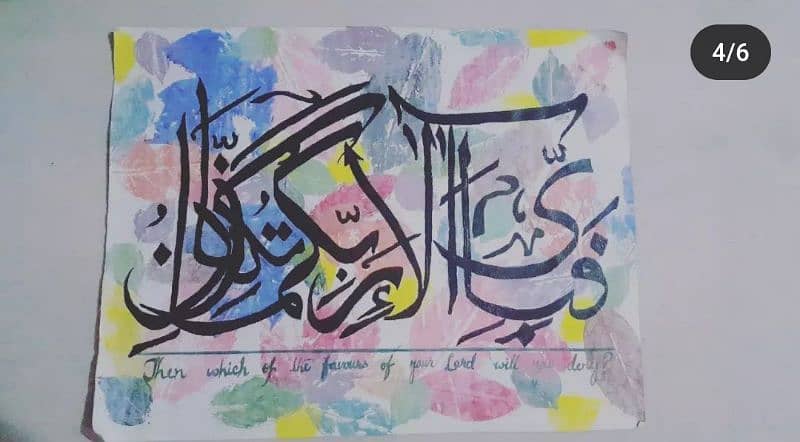 4/6
فَبِأَيِّ آلَاءِ رَبِّكُمَا تُكَذِّبَانِ
Then which of the favours of your Lord will you deny?